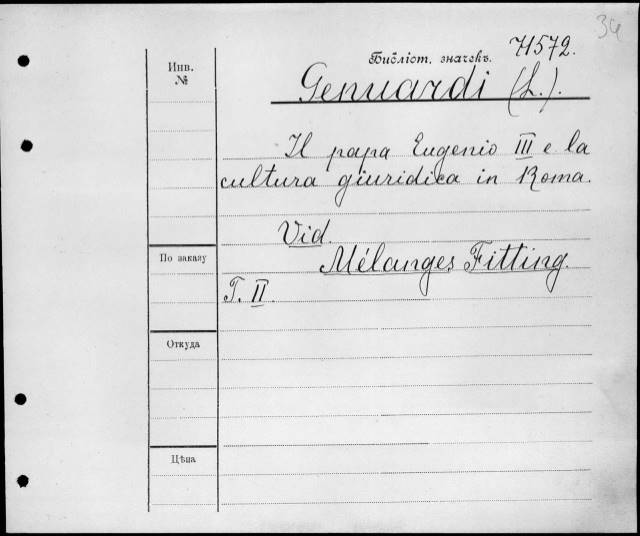 34
Инв.
№
Библіот. значекъ. 71572.
Genuardi (L.).
Il papa Eugenio III e la
cultura giuridica in Roma.
Vid.
По заказу
Mélanges Fitting.
T. II.
Откуда
Цѣна